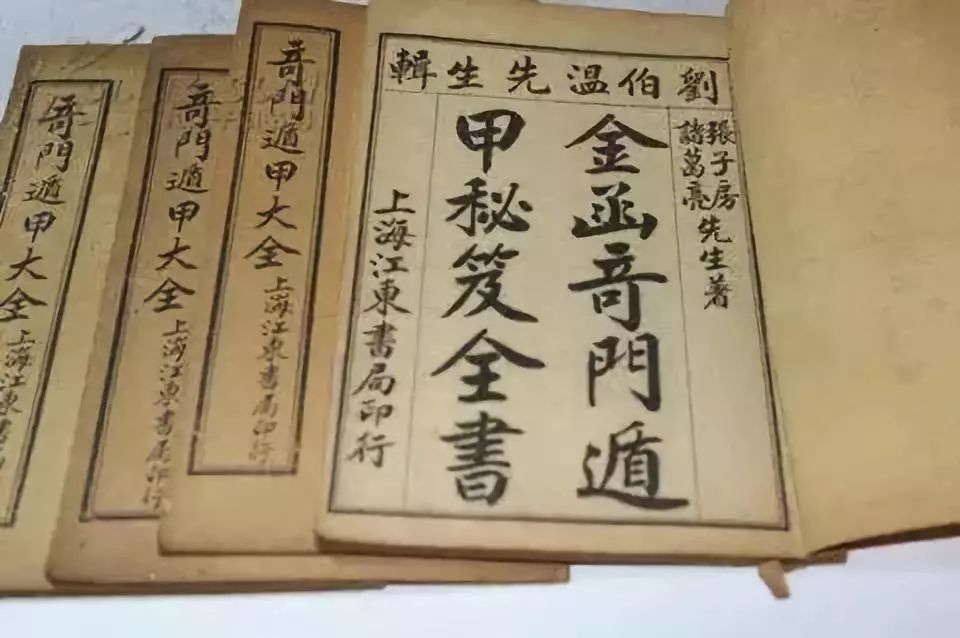 劉伯温先生輯
張子房
諸葛亮
先生著
金凾竒門遁
甲秘笈全書
上海江東書局印行
竒門遁甲大全
上海江東書局印行
竒門遁甲大全
上海江東書局印行
竒門遁甲大全
上海江東書